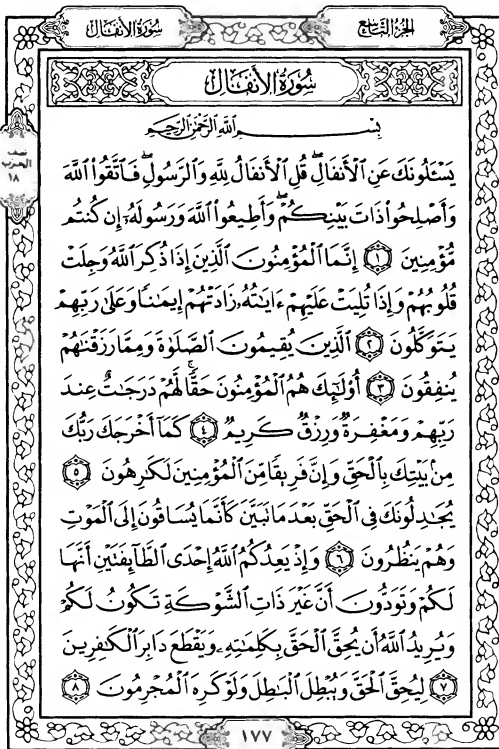 سُورَةُ الأَنفَال
الجُزْءُ التَّاسِع
سُورَةُ الأَنفَال
بِسْمِ اللَّهِ الرَّحْمَٰنِ الرَّحِيمِ
نصف
الحزب
١٨
يَسْـَٔلُونَكَ عَنِ ٱلْأَنفَالِۖ قُلِ ٱلْأَنفَالُ لِلَّهِ وَٱلرَّسُولِۖ فَٱتَّقُوا۟ ٱللَّهَ
وَأَصْلِحُوا۟ ذَاتَ بَيْنِكُمْۖ وَأَطِيعُوا۟ ٱللَّهَ وَرَسُولَهُۥٓ إِن كُنتُم
مُّؤْمِنِينَ ۝١ إِنَّمَا ٱلْمُؤْمِنُونَ ٱلَّذِينَ إِذَا ذُكِرَ ٱللَّهُ وَجِلَتْ
قُلُوبُهُمْ وَإِذَا تُلِيَتْ عَلَيْهِمْ ءَايَٰتُهُۥ زَادَتْهُمْ إِيمَٰنًا وَعَلَىٰ رَبِّهِمْ
يَتَوَكَّلُونَ ۝٢ ٱلَّذِينَ يُقِيمُونَ ٱلصَّلَوٰةَ وَمِمَّا رَزَقْنَٰهُمْ
يُنفِقُونَ ۝٣ أُو۟لَٰٓئِكَ هُمُ ٱلْمُؤْمِنُونَ حَقًّاۚ لَّهُمْ دَرَجَٰتٌ عِندَ
رَبِّهِمْ وَمَغْفِرَةٌ وَرِزْقٌ كَرِيمٌ ۝٤ كَمَآ أَخْرَجَكَ رَبُّكَ
مِنۢ بَيْتِكَ بِٱلْحَقِّ وَإِنَّ فَرِيقًا مِّنَ ٱلْمُؤْمِنِينَ لَكَٰرِهُونَ ۝٥
يُجَٰدِلُونَكَ فِى ٱلْحَقِّ بَعْدَ مَا تَبَيَّنَ كَأَنَّمَا يُسَاقُونَ إِلَى ٱلْمَوْتِ
وَهُمْ يَنظُرُونَ ۝٦ وَإِذْ يَعِدُكُمُ ٱللَّهُ إِحْدَى ٱلطَّآئِفَتَيْنِ أَنَّهَا
لَكُمْ وَتَوَدُّونَ أَنَّ غَيْرَ ذَاتِ ٱلشَّوْكَةِ تَكُونُ لَكُمْ
وَيُرِيدُ ٱللَّهُ أَن يُحِقَّ ٱلْحَقَّ بِكَلِمَٰتِهِۦ وَيَقْطَعَ دَابِرَ ٱلْكَٰفِرِينَ
۝٧ لِيُحِقَّ ٱلْحَقَّ وَيُبْطِلَ ٱلْبَٰطِلَ وَلَوْ كَرِهَ ٱلْمُجْرِمُونَ ۝٨
١٧٧